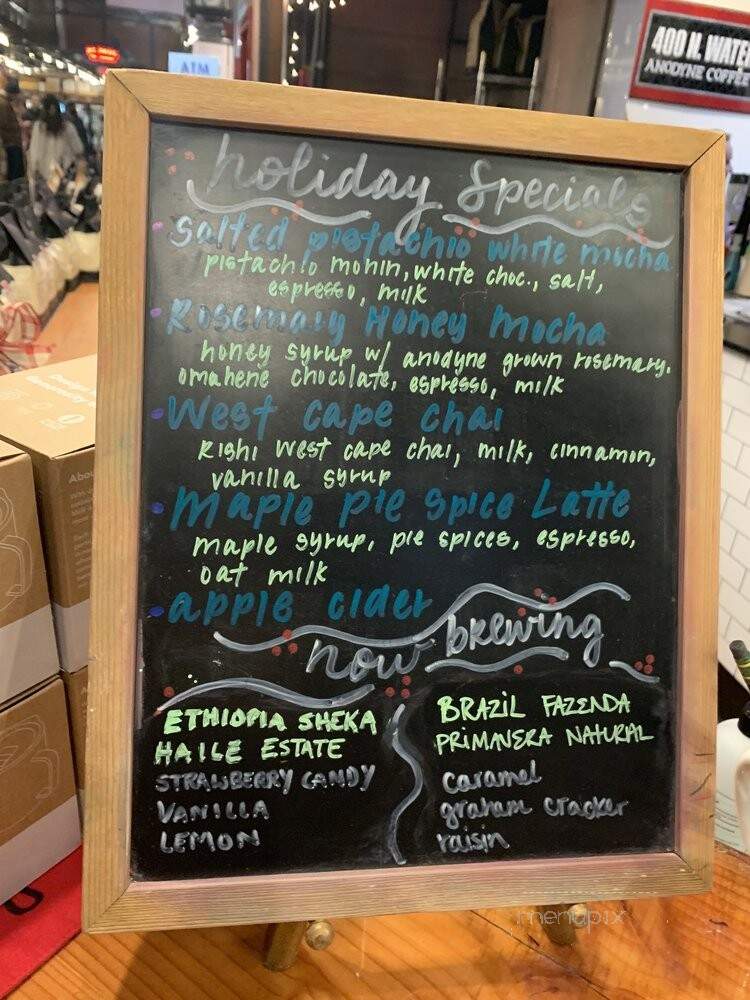 ATM
400 N. WATE
ANODYNE COFFE
holiday Specials
Salted pistachio white mocha
pistachio monin, white choc., salt,
espresso, milk
Rosemary Honey Mocha
honey syrup w/ anodyne grown rosemary,
omahene chocolate, espresso, milk
West cape chai
Rishi West cape chai, milk, cinnamon,
vanilla syrup
Maple Pie Spice Latte
maple syrup, pie spices, espresso,
oat milk
apple cider
now brewing
ETHIOPIA SHEKA
HAILE ESTATE
STRAWBERRY CANDY
VANILLA
LEMON
BRAZIL FAZENDA
PRIMAVERA NATURAL
caramel
graham cracker
raisin
Abou
menupix